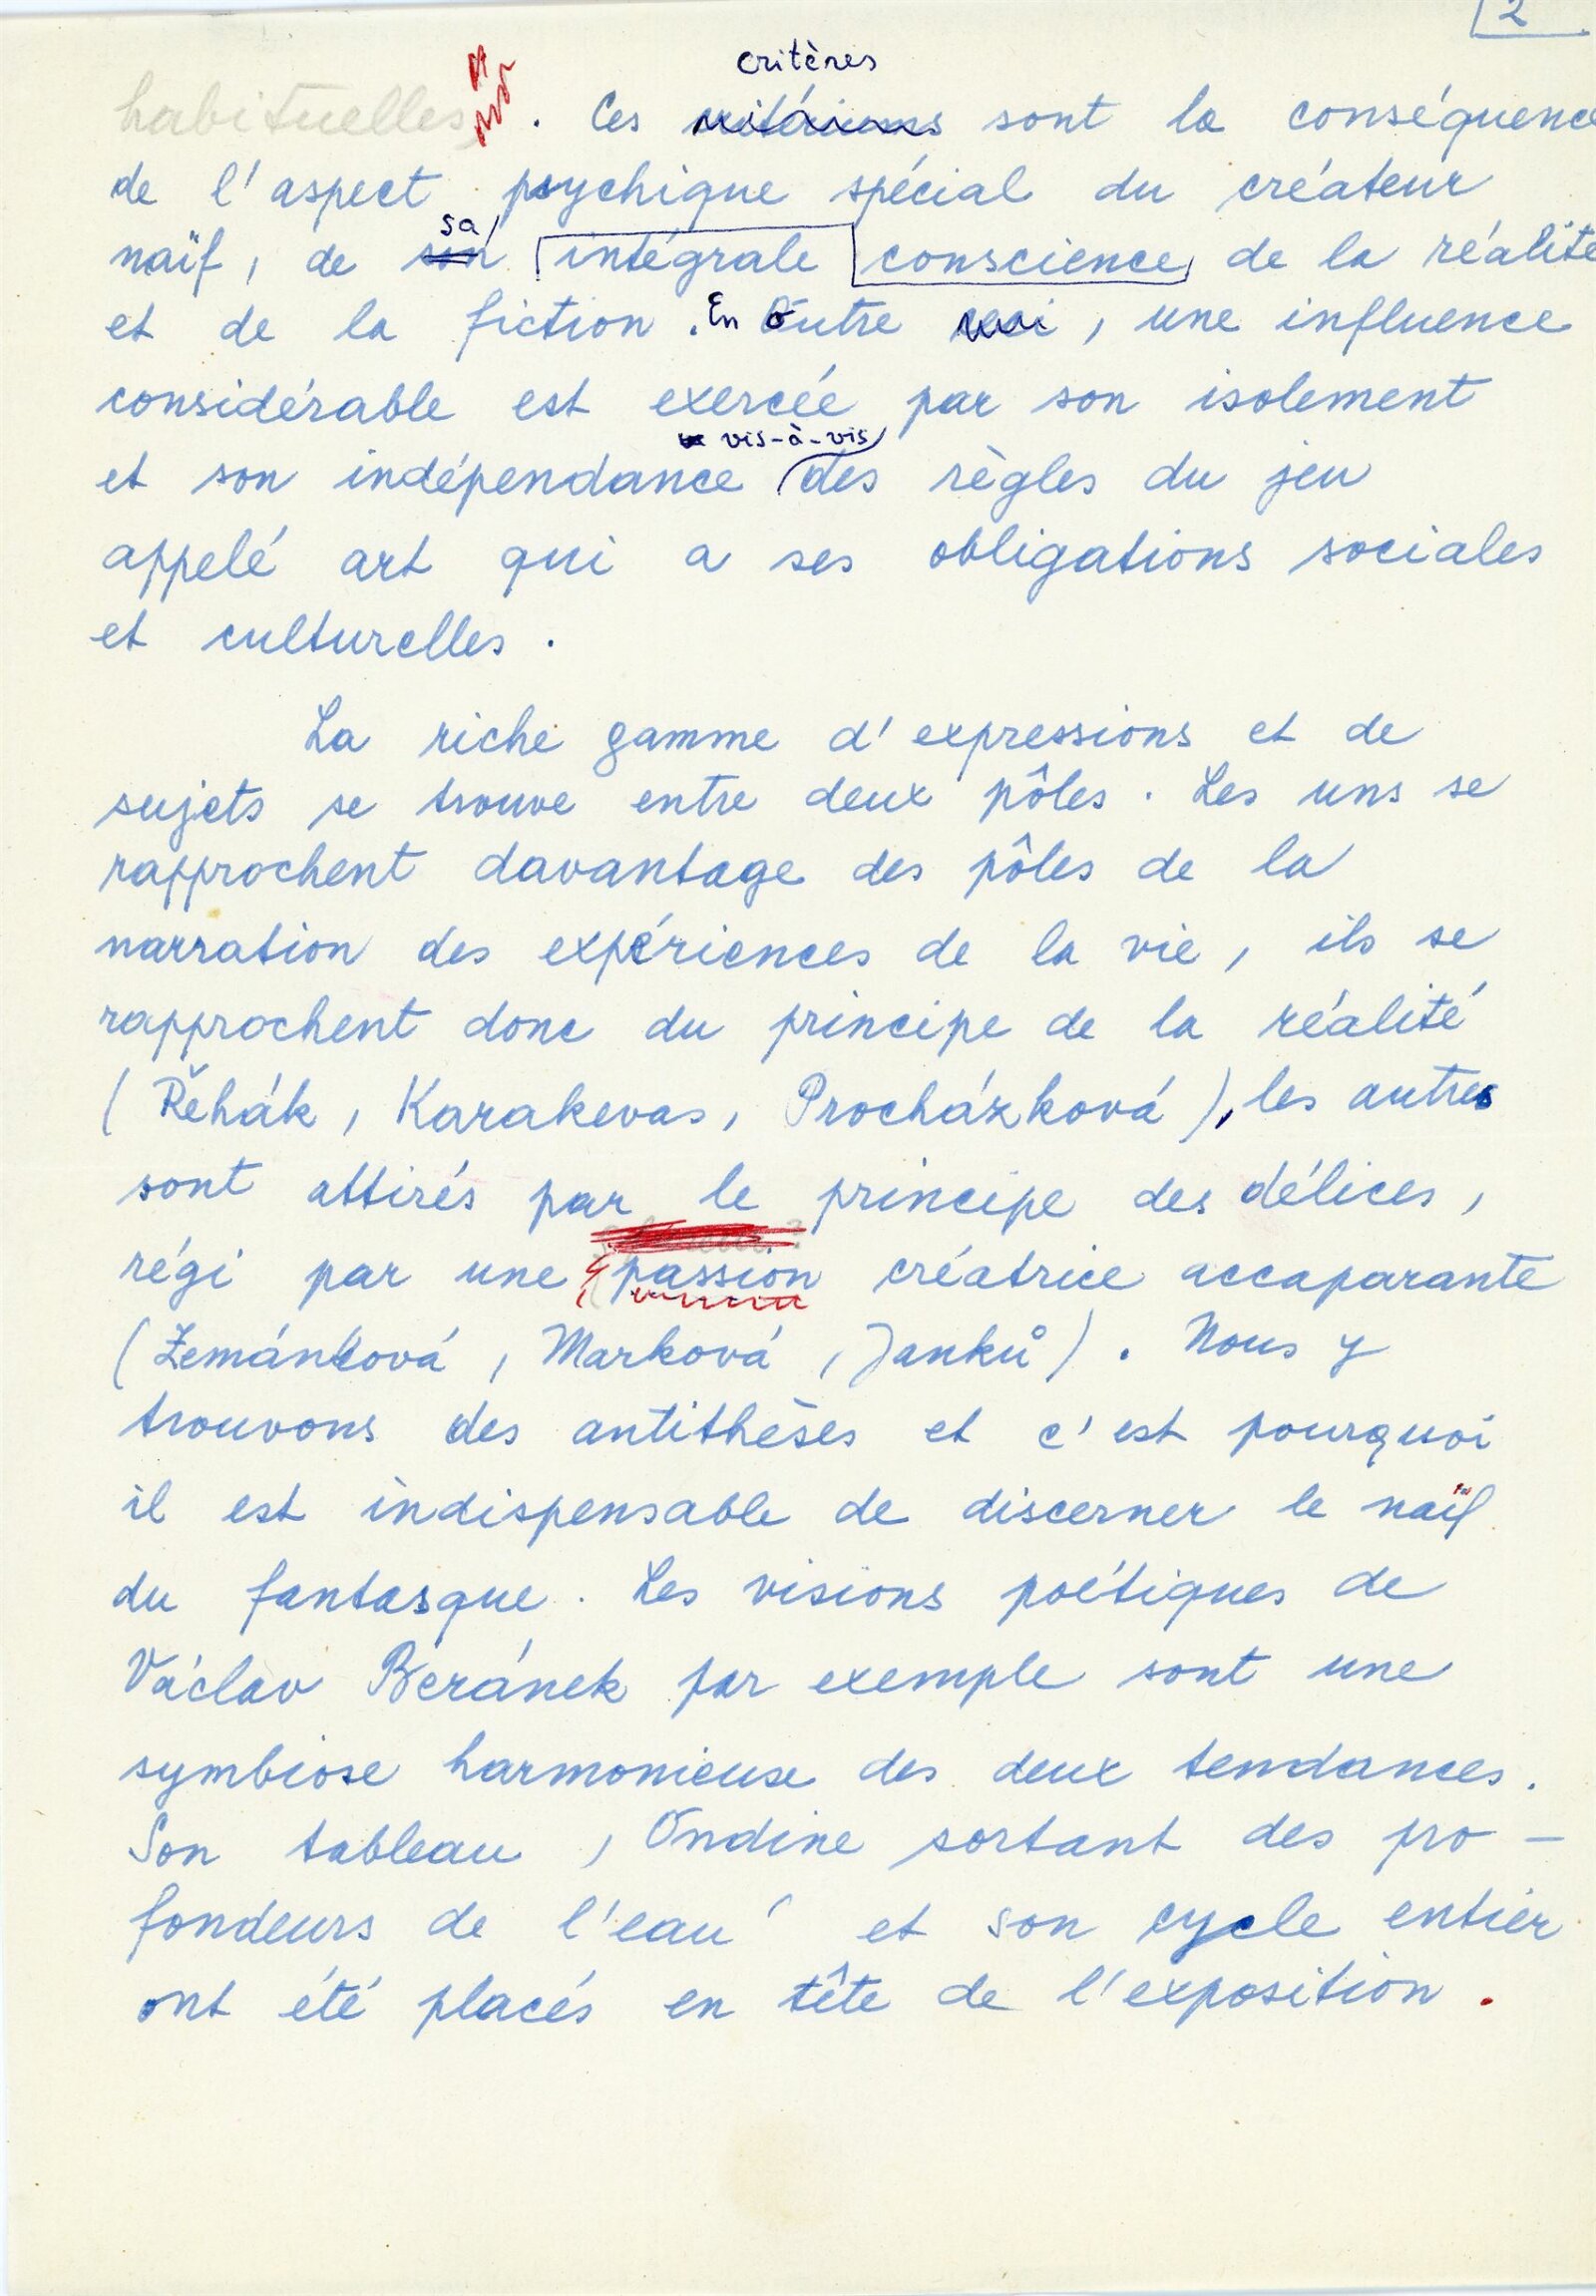 2
critères
habituelles . Ces critériums sont la conséquence
de l'aspect psychique spécial du créateur
sa
naïf, de son intégrale conscience de la réalité
et de la fiction. En Outre ceci, une influence
considérable est exercée par son isolement
vis-à-vis
et son indépendance des règles du jeu
appelé art qui a ses obligations sociales
et culturelles.
La riche gamme d'expressions et de
sujets se trouve entre deux pôles. Les uns se
rapprochent davantage des pôles de la
narration des expériences de la vie, ils se
rapprochent donc du principe de la réalité
(Řehák, Karakevas, Procházková), les autres
sont attirés par le principe des délices,
régi par une passion créatrice accaparante
(Zemánková, Marková, Janků). Nous y
trouvons des antithèses et c'est pourquoi
il est indispensable de discerner le naïf
du fantasque. Les visions poétiques de
Václav Beránek par exemple sont une
symbiose harmonieuse des deux tendances.
Son tableau , Ondine sortant des pro-
fondeurs de l'eau' et son cycle entier
ont été placés en tête de l'exposition.